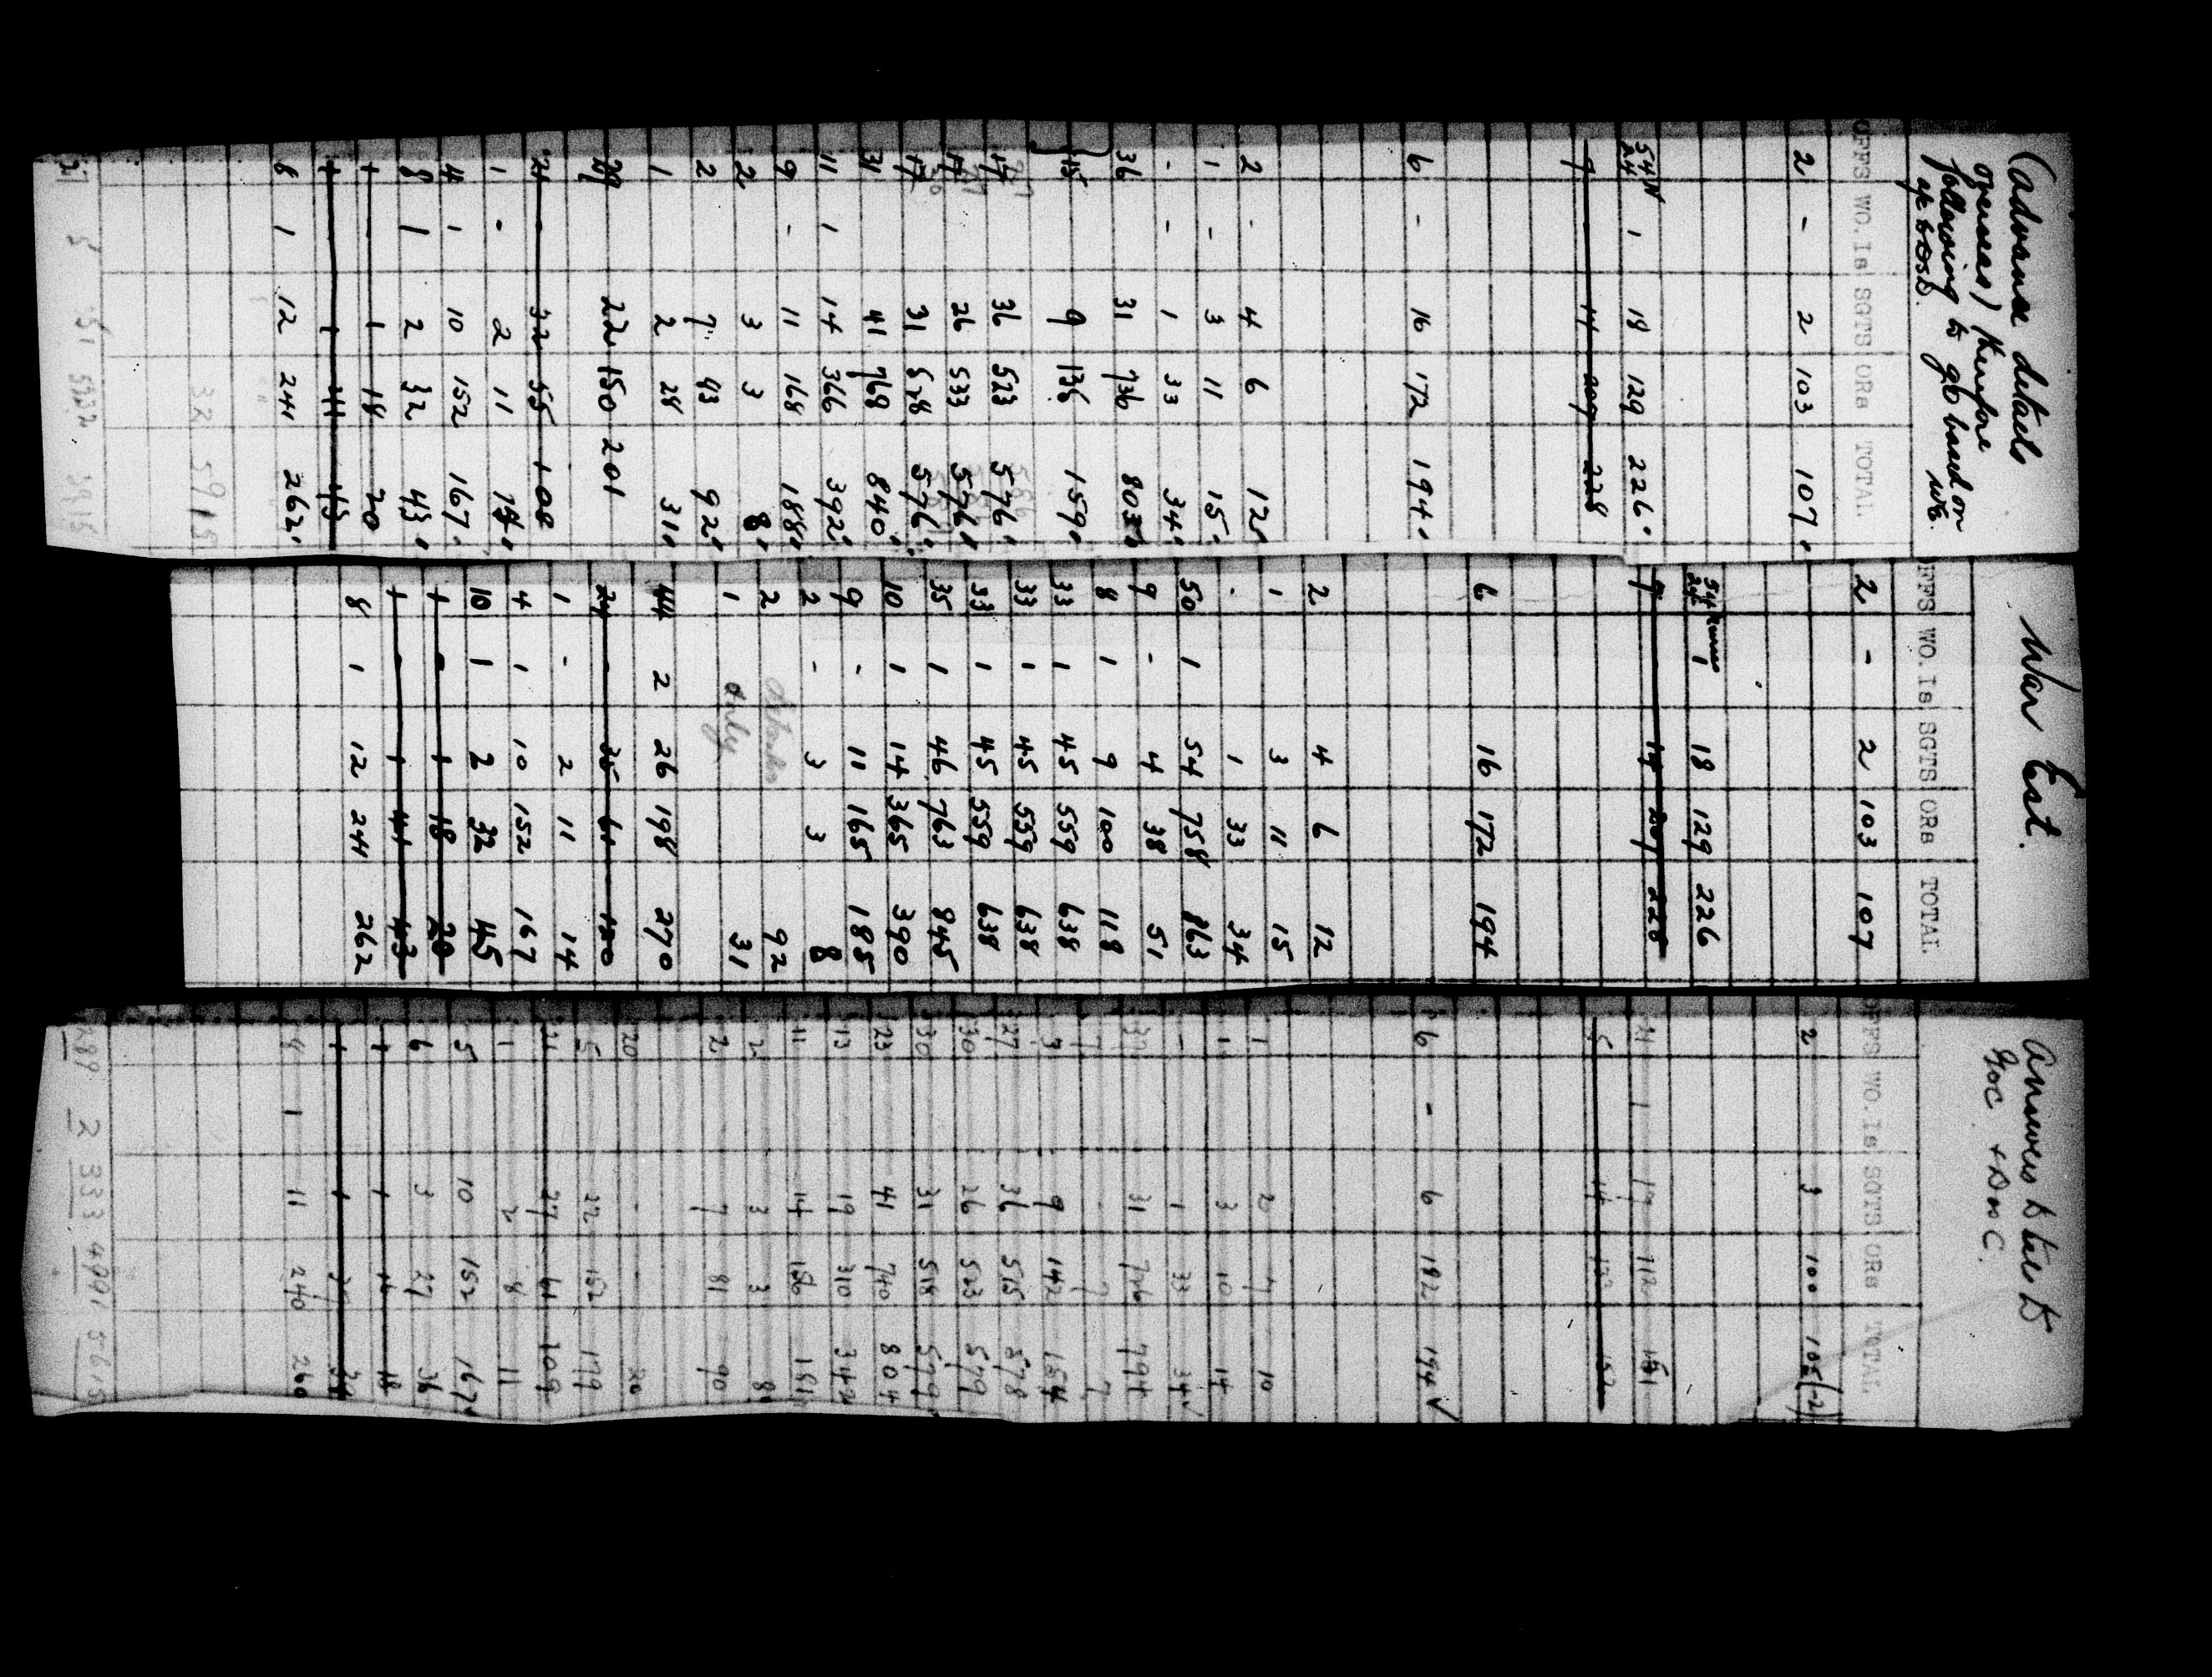 (advance details
overseas) therefore
following to go based on
WE.
OFFS WO.Is SGTS ORs TOTAL
2 - 2 103 107
1 18 129 226
7 - 14 207 228
6 - 16 172 194
2 - 4 6 12
1 - 3 11 15
- - 1 33 34
36 31 736 803
15 9 136 159
36 523 576
26 533 576
31 528 576
31 41 768 840
11 1 14 366 392
9 - 11 168 188
2 3 3 8
2 7 43 92
1 2 28 31
22 150 201
21 - 32 55 108
1 - 2 11 14
4 1 10 152 167
8 1 2 32 43
1 - 1 18 20
1 1 41 43
8 1 12 241 262
32 5915
War Est.
OFFS WO.Is SGTS ORs TOTAL
2 - 2 103 107
1 18 129 226
7 14 207 228
6 16 172 194
2 4 6 12
1 3 11 15
- 1 33 34
50 1 54 758 863
9 - 4 38 51
8 1 9 100 118
33 1 45 559 638
33 1 45 559 638
33 1 45 559 638
35 1 46 763 845
10 1 14 365 390
9 - 11 165 185
2 - 3 3 8
2 92
1 only 31
44 2 26 198 270
24 - 35 61 120
1 - 2 11 14
4 1 10 152 167
10 1 2 32 45
1 - 1 18 20
1 - 1 41 43
8 1 12 241 262
Answers to tele to
GOC + D in C.
OFFS WO.Is SGTS ORs TOTAL
2 3 100 105 (-2)
1 17 112
5 14 133 152
6 - 6 182 194 √
1 2 7 10
1 3 10 14
- 1 33 34
31 794
7 - 7
3 9 142 154
27 36 515 578
30 26 523 579
30 31 518 579
23 41 740 804
13 19 310 342
11 14 156 181
2 3 3 8
2 7 81 90
20 - - 20
5 22 152 179
21 27 61 109
1 2 8 11
5 10 152 167
6 3 27 36
1 1 16 18
8 1 11 240 260
2 333 4991 5615